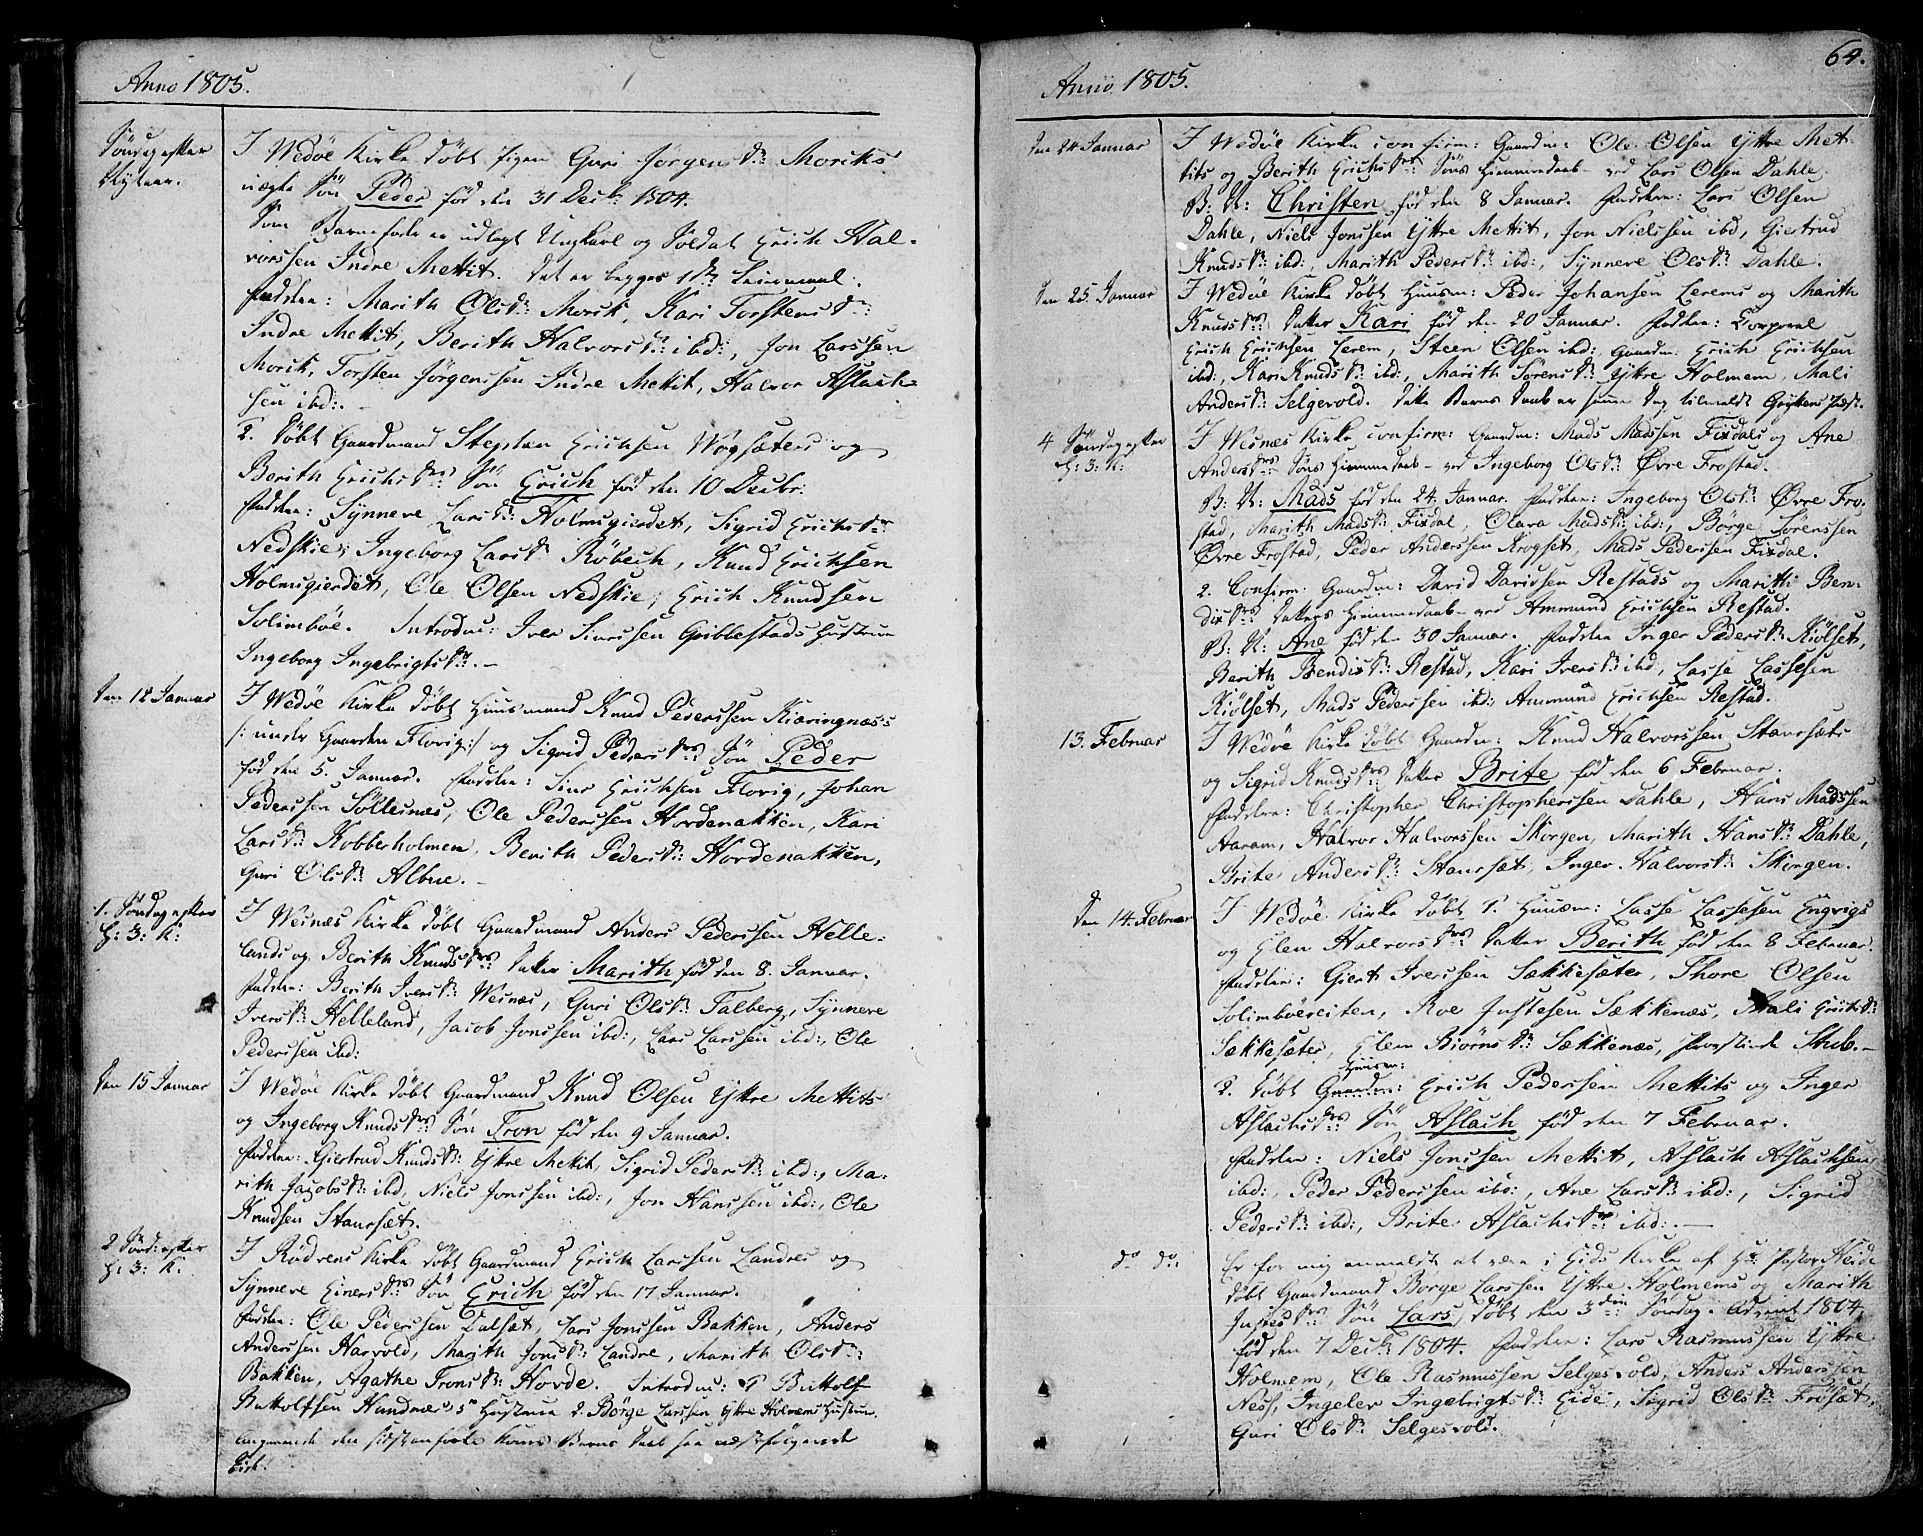 Anno 1805.
Søndag efter
Nytaar.
I Wedøe Kirke døbt Pigen Guri Jørgens Dr: Moriks
uægte Søn Peder fød den 31 Decbr: 1804.
Som Barnefader er udlagt Ungkarl og Soldat Erich Hal-
vorssen Indre Mettit. Det er begges 1ste Leiermaal.
Faddere: Marith Ols Dr: Morik, Kari Torstens Dr:
Indre Mettit, Berith Halvors Dr: ibd:, Jon Larssen
Morik, Torsten Jørgenssen Indre Mettit, Halvor Aslach-
sen ibd:.
2. Døbt Gaardmand Stephen Erichsen Wogsæters og
Berith Erichs Drs: Søn Erich fød den 10 Decbr:
Faddere: Synneve Lars Dr: Holmsgierdet, Sigrid Erichs Dr:
Nedskie, Ingeborg Lars Dr: Röbech, Knud Erichsen
Holmsgierdet, Ole Olsen Nedskie, Erich Knudsen
Solimbøe. Introdu: Iver Siurssen Gribbestads Hustrue
Ingeborg Ingebrigts Dr:.
Den 12 Januar
I Wedøe Kirke døbt Huusmand Knud Pederssen Kieringnæss
/: under Gaarden Florvig :/ og Sigrid Peders Drs: Søn Peder
fød den 5. Januar. Faddere: Siur Erichsen Florvig, Johan
Pederssen Sølliesnes, Ole Pederssen Hordenakken, Kari
Lars Dr: Kobberholmen, Berith Peders Dr: Hordenakken,
Guri Ols Dr: Albue.
1. Søndag efter
H: 3: K:
I Wesnæs Kirke døbt Gaardmand Anders Pederssen Helle-
lands og Berith Knuds Drs: Datter Marith fød den 8. Januar.
Faddere: Berith Ivers Dr: Wesnæs, Guri Ols Dr: Talberg, Synneve
Ivers Dr: Helleland, Jacob Jonssen ibd:, Lars Larssen ibd:, Ole
Pederssen ibd:
Den 15 Januar
I Wedøe Kirke døbt Gaardmand Knud Olsen Yttre Mettits
og Ingeborg Knuds Drs: Søn Tron fød den 9 Januar.
Faddere: Giertrud Knuds Dr: Yttre Mettit, Sigrid Peders Dr: ibd:, Ma-
rith Jacobs Dr: ibd, Niels Jonssen ibd:, Jon Hanssen ibd:, Ole
Knudsen Staurset.
2 Sønd: efter
H: 3: K:
I Rødvens Kirke døbt Gaardmand Erich Larssen Landres og
Synneve Einers Drs: Søn Erich fød den 17 Januar.
Faddere: Ole Pederssen Dalsæt, Lars Jonssen Bakken, Anders
Anderssen Harvold, Marith Jons Dr: Landre, Marith Ols Dr:
Bakken, Agathe Trons Dr: Horde. Introdu: 1 Buttolf
Buttolfsen Hundnæs's Hustrue 2. Børge Larssen Yttre Holmems Hustrue.
Angaaende den sidstanførte Kones Barns Daab see næstfølgende
Side.
64.
Anno 1805.
Den 24 Januar
I Wedøe Kirke confirm: Gaardm: Ole Olsen Yttre Met-
tits og Berith Erichs Drs: Søns Hiemmedaab ved Lars Olsen Dahle.
B: N: Christen fød den 8 Januar. Faddere: Lars Olsen
Dahle, Niels Jonssen Yttre Mettit, Jon Nielssen ibd, Giertrud
Knuds Dr: ibd:, Marith Peders Dr: ibd:, Synneve Ols Dr: Dahle.
Den 25. Januar
I Wedøe Kirke døbt Huusm: Peder Johansen Lerems og Marith
Knuds Drs: Datter Kari fød den 20 Januar. Faddere: Corporal
Erich Erichsen Lerem, Steen Olsen ibd:, Gaardm: Erich Erichsen
ibd:, Kari Knuds Dr: ibd:, Marith Sørens Dr: Yttre Holmem, Mali
Anders Dr: Selgevold. Dette Barns Daab er samme Dag tilmeldt Grytten Præst.
4 Søndag efter
H: 3: K:
I Wesnæs Kirke confirm: Gaardm: Mads Madssen Fixdals og Ane
Anders Drs: Søns Hiemmedaab ved Ingeborg Ols Dr: Øvre Frostad.
B: N: Mads fød den 24. Januar. Faddere: Ingeborg Ols Dr: Øvre Fro-
stad, Marith Mads Dr: Fixdal, Olava Mads Dr: ibd:, Børge Sørenssen
Øvre Frostad, Peder Anderssen Krogset, Mads Pederssen Fixdal.
2. Confirm: Gaardm: David Davidsen Restads og Marith Ben-
dix Drs: Datters Hiemmedaab ved Ammund Erichsen Restad.
B: N: Ane fød den 30 Januar. Faddere Inger Peders Dr: Kiölset,
Berith Bendix Dr: Restad, Kari Ivers Dr: ibd, Lasse Lassesen
Kiölset, Mads Pederssen ibd:, Ammund Erichsen Restad.
13. Februar
I Wedøe Kirke døbt Gaardm: Knud Halvorssen Staursets
og Sigrid Knuds Drs: Datter Brite fød den 6 Februar.
Faddere: Christopher Christopherssen Dahle, Hans Madssen
Aaram, Halvor Halvorssen Skorgen, Marith Hans Dr: Dahle,
Brite Anders Dr: Staurset, Inger Halvors Dr: Skorgen.
Den 14. Februar
I Wedøe Kirke døbt 1. Huusm: Lasse Lassesen Engvigs
og Elen Halvors Drs: Datter Berith fød den 8 Februar.
Faddere: Giert Iverssen Sækkesæter, Thore Olsen
Solimbøereiten, Roe Justesen Sækkenæs, Mali Erichs Dr:
Sækkesæter, Elen Biørns Dr: Sækkenæs, Præstinde Stub.
Huusm:
2. Døbt Gaardm: Erich Pederssen Mettits og Inger
Aslachs Drs: Søn Aslach fød den 7 Februar.
Faddere: Niels Jonssen Mettit, Aslach Aslachsen
ibd:, Peder Pederssen ibd:, Ane Lars Dr: ibd:, Sigrid
Peders Dr: ibd:, Brite Aslachs Dr: ibd:.
do do:
Er for mig anmeldt at være i Eids Kirke af Hr: Pastor Heide
døbt Gaardmand Børge Larssen Yttre Holmems og Marith
Justes Drs: Søn Lars, døbt den 3die Søndag Advent 1804,
fød den 7 Decbr: 1804. Faddere: Lars Rasmussen Yttre
Holmem, Ole Rasmussen Selgesvold, Anders Anderssen
Ness, Ingeler Ingebrigts Dr: Eide, Sigrid Ols Dr: Frøset,
Guri Ols Dr: Selgesvold.